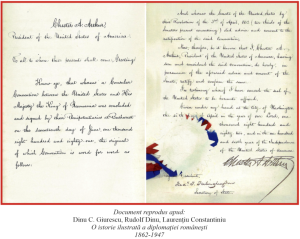 Chester A. Arthur,
President of the United States of America,
To all to whom these presents shall come, Greeting:
Know ye, that whereas a Consular
Convention between the United States and His
Majesty the King of Roumania was concluded
and signed by their Plenipotentiaries at Bucharest
on the seventeenth day of June one thousand
eight hundred and eighty-one, the original
of which Convention is word for word as
follows:
And whereas the Senate of the United States by
their Resolution of the 5th of April, 1882, (two thirds of the
Senators present concurring) did advise and consent to the
ratification of the said Convention;
Now, therefore, be it known that I, Chester A.
Arthur, President of the United States of America, having
seen and considered the said Convention, do hereby, in
pursuance of the aforesaid advice and consent of the
Senate, ratify and confirm the same.
In testimony whereof I have caused the seal of
the United States to be hereunto affixed.
Given under my hand at the City of Washington
the of April in the year of our Lord, one
thousand eight hundred and
eighty two, and
of the Independence
of the United States of America
Chester A. Arthur
Secretary of State.
Document reprodus apud:
Dinu C. Giurescu, Rudolf Dinu, Laurenţiu Constantiniu
O istorie ilustrată a diplomaţiei româneşti
1862-1947